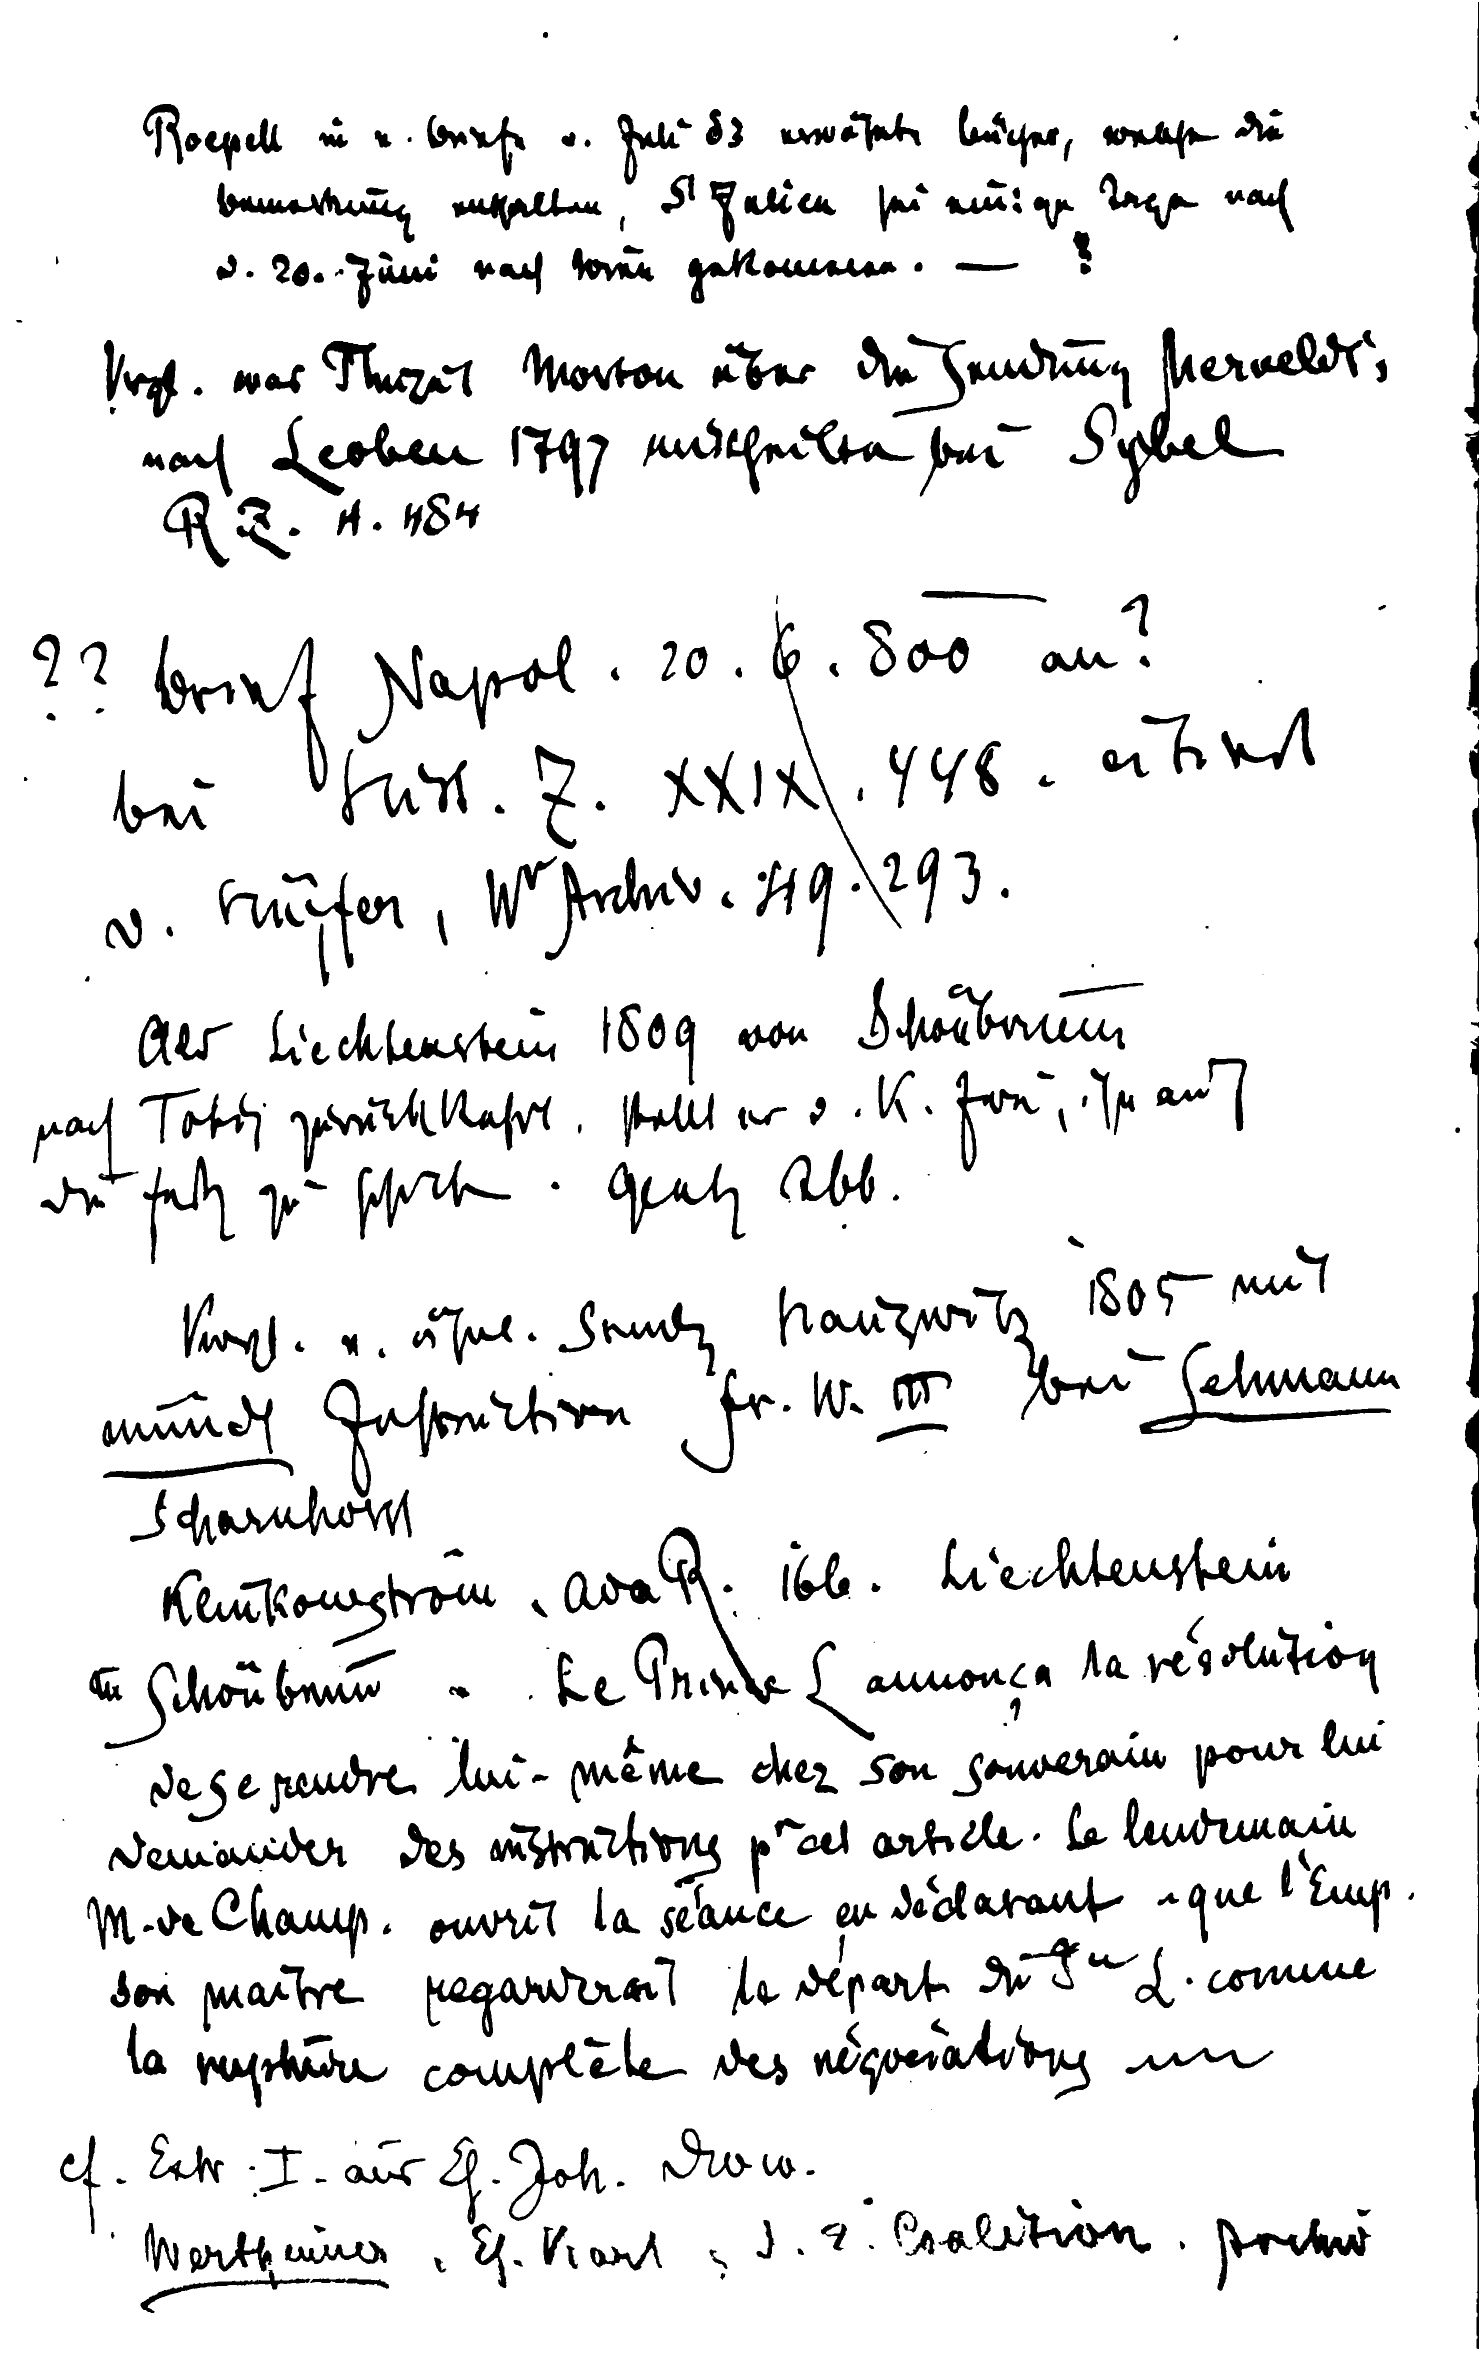 Roepell in e. Briefe v. Juli 83 erwähnte Bücher, welche die
Bemerkung enthalten, St Julien sei einige Tage nach
d. 20. Juni nach Wien gekommen. — ?
Vrgl. was Thugut Morton über die Sendung Merveldt's
nach Leoben 1797 mittheilte bei Sybel
R Z. 484
?? Brief Napol. 20. 6. 800 an?
bei Hist. Z. XXIX. 448. citirt
v. Hüffer, Wr Archiv. 49. 293.
Als Liechtenstein 1809 von Schönbrunn
nach Totis zurückkehrt. stellt er d. K. frei, ihn auf
die Festg zu schicken. Gentz Tbb.
Vrgl. d. ähnl. Sendg Haugwitz 1805 mit
mündl Instruction Fr. W. III bei Lehmann
Scharnhorst
Klinkowström, AdaR. 166. Liechtenstein
in Schönbrunn „Le Prince L annonça la résolution
de se rendre lui-même chez son souverain pour lui
demander des instructions pr cet article. Le lendemain
M. de Champ. ouvrit la séance en déclarant que l'Emp.
son maître regarderait le départ du L. comme
la rupture complète des négociations
cf. Extr. I. aus Eh. Joh. Denkw.
Wertheimer, Eh. Karl u. d. 2. Coalition. Archiv